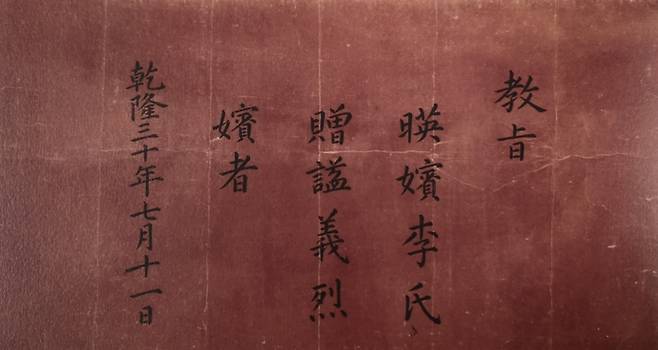 教旨
暎嬪李氏
贈謚義烈
嬪者
乾隆三十年七月十一日